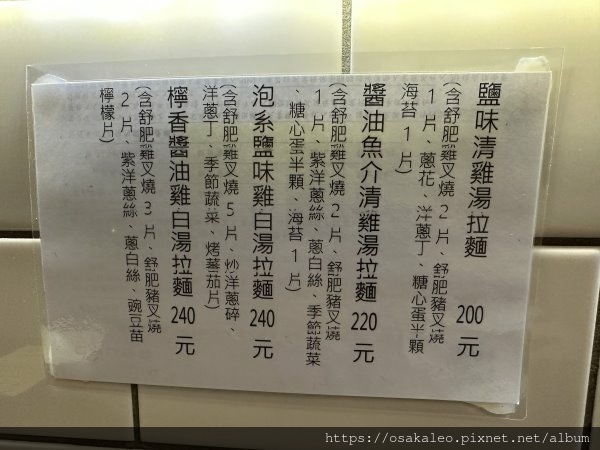 鹽味清雞湯拉麵 200元
(含舒肥雞叉燒2片、舒肥豬叉燒
1片、蔥花、洋蔥丁、糖心蛋半顆
海苔1片)
醬油魚介清雞湯拉麵 220元
(含舒肥雞叉燒2片、舒肥豬叉燒
1片、紫洋蔥絲、蔥白絲、季節蔬菜
、糖心蛋半顆、海苔1片)
泡系鹽味雞白湯拉麵 240元
(含舒肥雞叉燒5片、炒洋蔥碎、
洋蔥丁、季節蔬菜、烤蕃茄片)
檸香醬油雞白湯拉麵 240元
(含舒肥雞叉燒3片、舒肥豬叉燒
2片、紫洋蔥絲、蔥白絲、豌豆苗
檸檬片)
https://osakaleo.pixnet.net/album